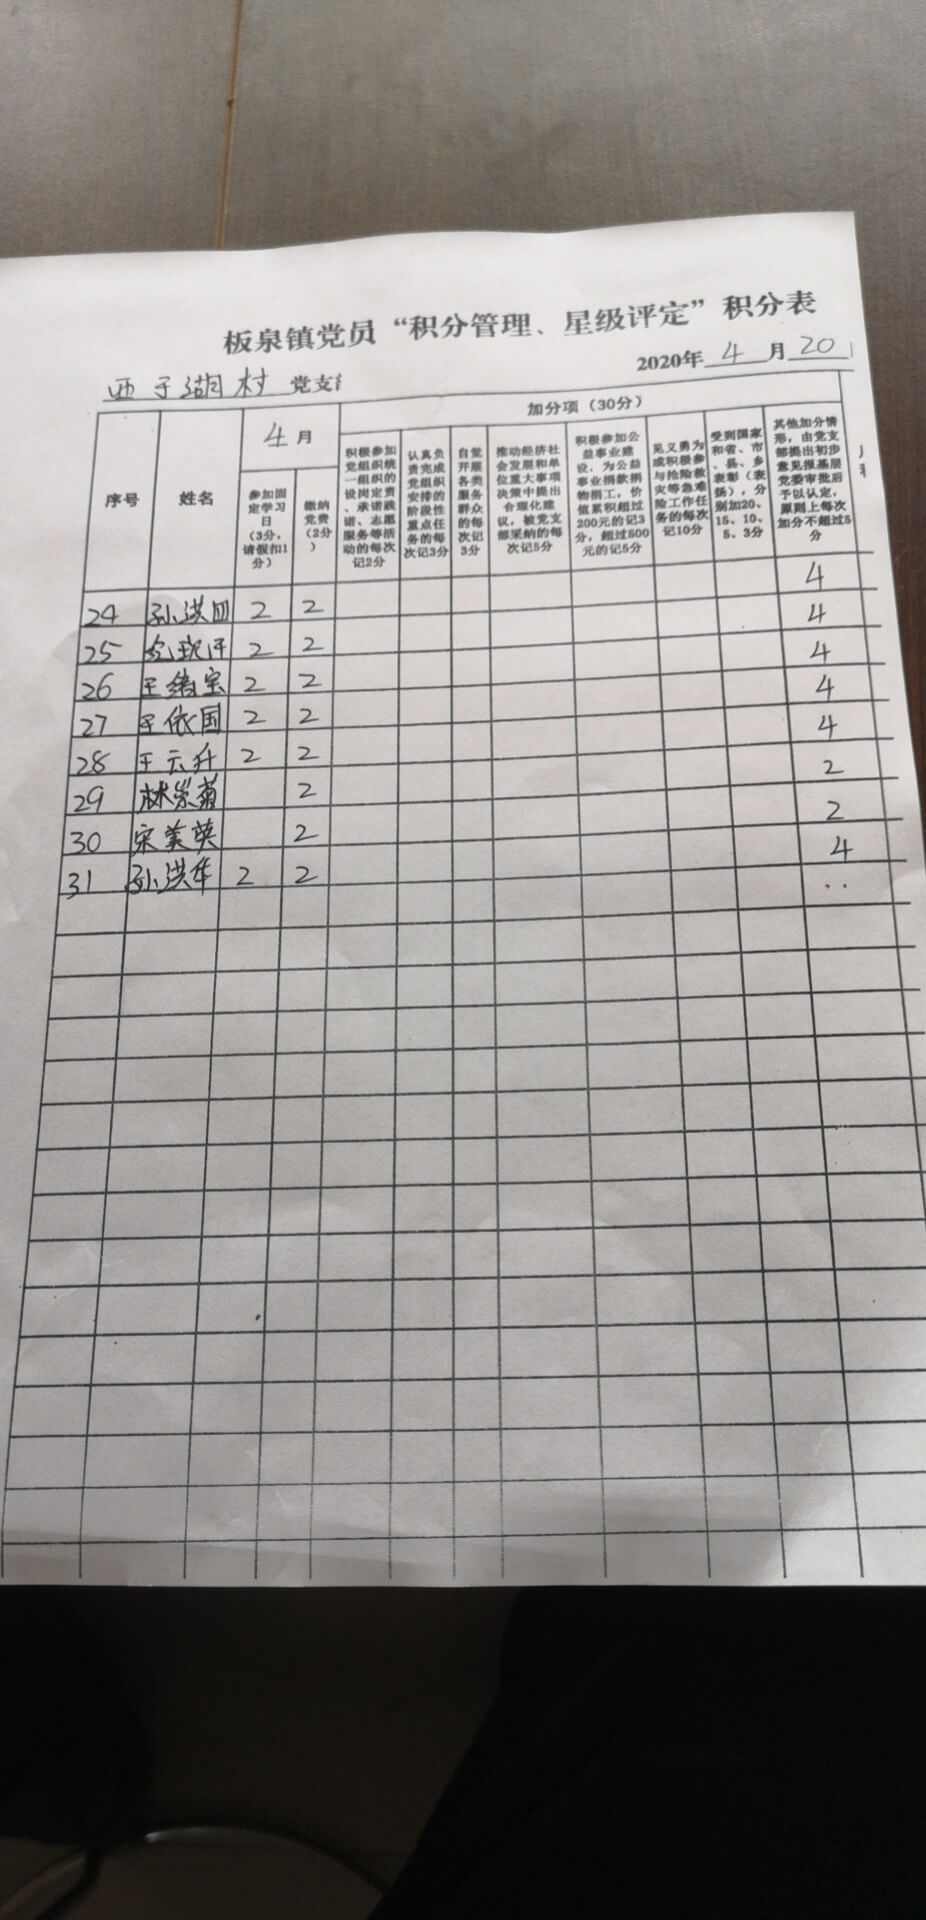 板泉镇党员“积分管理、星级评定”积分表
西于湖村 党支
2020年 4 月 20
序号
姓名
4 月
参加固
定学习
日
(3分,
请假扣1
分)
缴纳
党费
(2分
)
加分项(30分)
积极参加
党组织统
一组织的
设岗定责
、承诺践
诺、志愿
服务等活
动的每次
记2分
认真负
责完成
党组织
安排的
阶段性
重点任
务的每
次记3分
自觉
开展
各类
服务
群众
的每
次记
3分
推动经济社
会发展和单
位重大事项
决策中提出
合理化建
议,被党支
部采纳的每
次记5分
积极参加公
益事业建
设,为公益
事业捐款捐
物捐工,价
值累积超过
200元的记3
分,超过500
元的记5分
见义勇为
或积极参
与抢险救
灾等急难
险工作任
务的每次
记10分
受到国家
和省、市
、县、乡
表彰(表
扬),分
别加20、
15、10、
5、3分
其他加分情
形,由党支
部提出初步
意见报基层
党委审批后
予以认定,
原则上每次
加分不超过5
分
24 孙洪四 2 2 4
25 2 2 4
26 王绪宝 2 2 4
27 王依国 2 2 4
28 王云升 2 2 4
29 林崇菊 2 2
30 宋美英 2 2
31 孙洪华 2 2 4